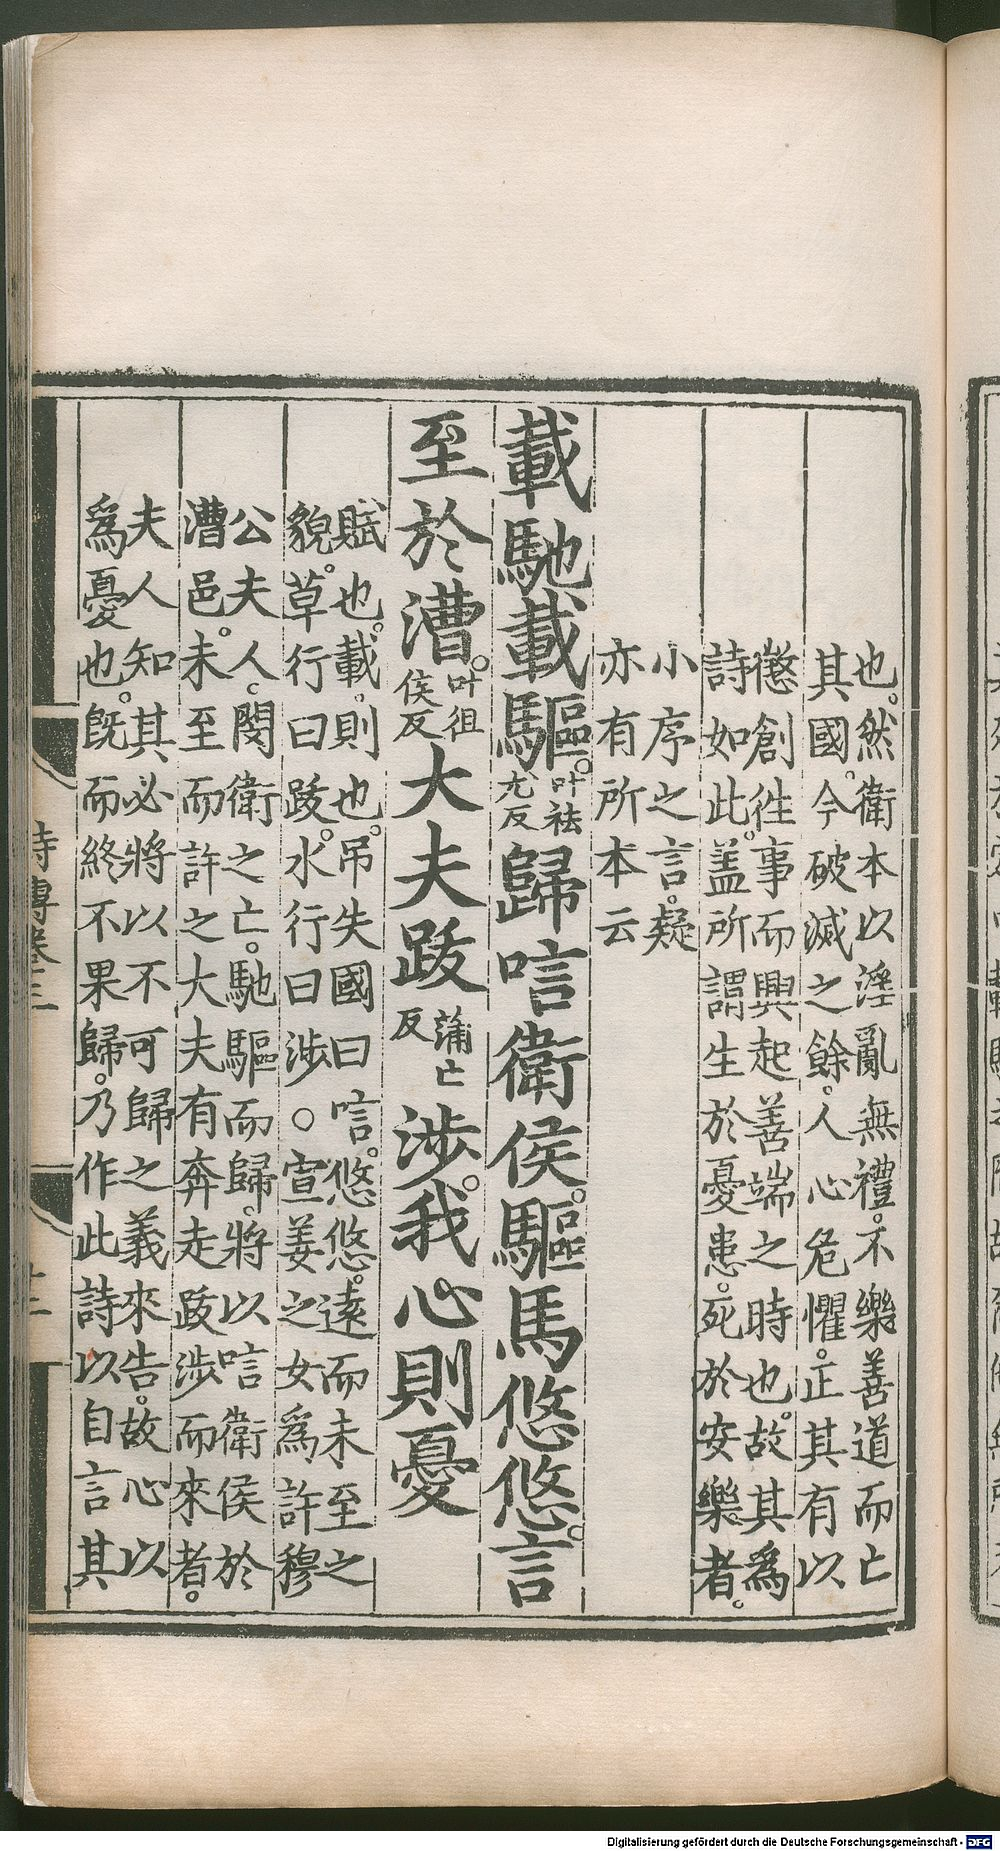 也然衛本以淫亂無禮不樂善道而亡
其國今破滅之餘人心危懼正其有以
懲創徃事而興起善端之時也故其爲
詩如此盖所謂生於憂患死於安樂者
小序之言疑
亦有所本云
載馳載驅叶祛尤反歸唁衛侯驅馬悠悠言
至於漕叶徂侯反大夫跋蒲亡反涉我心則憂
賦也載則也吊失國曰唁悠悠遠而未至之
貌草行曰跋水行曰涉○宣姜之女爲許穆
公夫人閔衛之亡馳驅而歸將以唁衛侯於
漕邑未至而許之大夫有奔走跋涉而來者
夫人知其必將以不可歸之義來告故心以
爲憂也旣而終不果歸乃作此詩以自言其
詩傳卷三
Digitalisierung gefördert durch die Deutsche Forschungsgemeinschaft - DFG